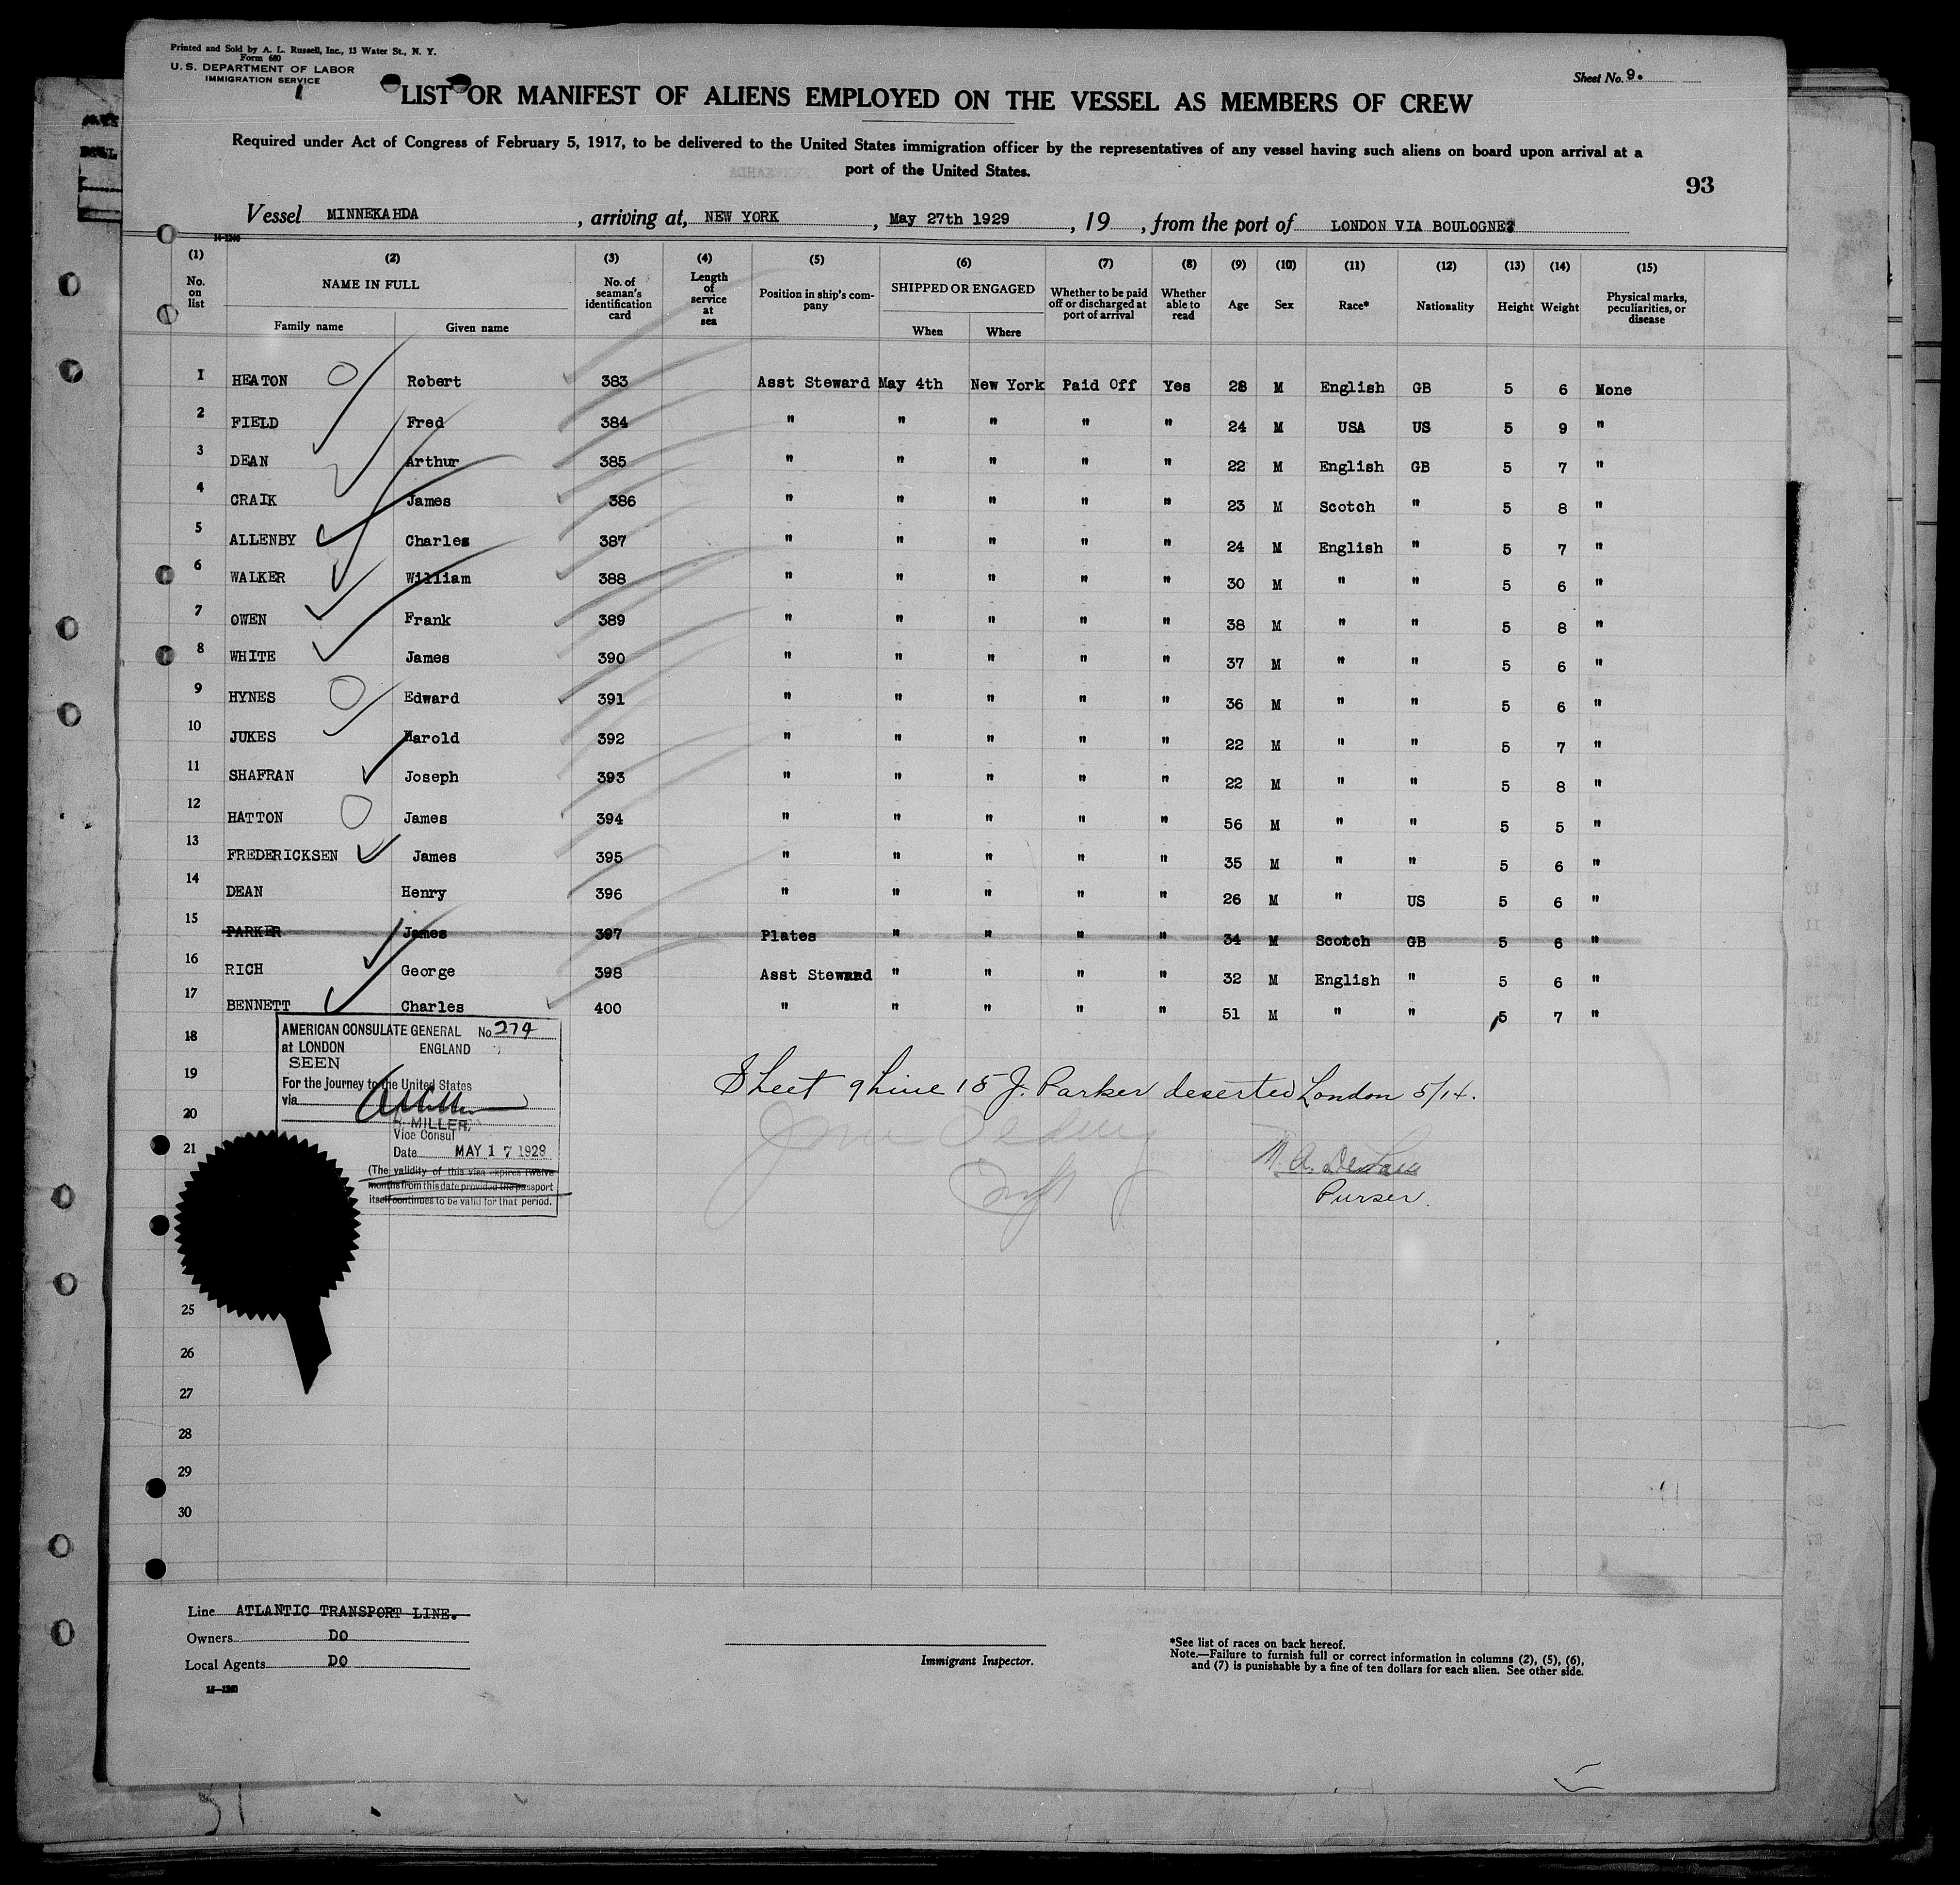 Printed and Sold by A. L. Russell, Inc., 13 Water St., N. Y.
Form 680
U. S. DEPARTMENT OF LABOR
IMMIGRATION SERVICE
Sheet No. 9.
LIST OR MANIFEST OF ALIENS EMPLOYED ON THE VESSEL AS MEMBERS OF CREW
Required under Act of Congress of February 5, 1917, to be delivered to the United States immigration officer by the representatives of any vessel having such aliens on board upon arrival at a
port of the United States.
93
Vessel MINNEKAHDA , arriving at, NEW YORK , May 27th 1929 , 19 , from the port of LONDON VIA BOULOGNE
14-1240
(1) (2) (3) (4) (5) (6) (7) (8) (9) (10) (11) (12) (13) (14) (15)
No. on list NAME IN FULL No. of seaman's identification card Length of service at sea Position in ship's company SHIPPED OR ENGAGED Whether to be paid off or discharged at port of arrival Whether able to read Age Sex Race* Nationality Height Weight Physical marks, peculiarities, or disease
Family name Given name When Where
1 HEATON Robert 383 Asst Steward May 4th New York Paid Off Yes 28 M English GB 5 6 None
2 FIELD Fred 384 " " " " " 24 M USA US 5 9 "
3 DEAN Arthur 385 " " " " " 22 M English GB 5 7 "
4 CRAIK James 386 " " " " " 23 M Scotch " 5 8 "
5 ALLENBY Charles 387 " " " " " 24 M English " 5 7 "
6 WALKER William 388 " " " " " 30 M " " 5 6 "
7 OWEN Frank 389 " " " " " 38 M " " 5 8 "
8 WHITE James 390 " " " " " 37 M " " 5 6 "
9 HYNES Edward 391 " " " " " 36 M " " 5 6 "
10 JUKES Harold 392 " " " " " 22 M " " 5 7 "
11 SHAFRAN Joseph 393 " " " " " 22 M " " 5 8 "
12 HATTON James 394 " " " " " 56 M " " 5 5 "
13 FREDERICKSEN James 395 " " " " " 35 M " " 5 6 "
14 DEAN Henry 396 " " " " " 26 M " US 5 6 "
15 PARKER James 397 Plates " " " " 34 M Scotch GB 5 6 "
16 RICH George 398 Asst Steward " " " " 32 M English " 5 6 "
17 BENNETT Charles 400 " " " " " 51 M " " 5 7 "
18
19
20
21
25
26
27
28
29
30
AMERICAN CONSULATE GENERAL No 274
at LONDON ENGLAND
SEEN
For the journey to the United States
via
MILLER,
Vice Consul
Date MAY 17 1929
(The validity of this visa expires twelve
months from this date provided the passport
itself continues to be valid for that period.
Sheet 9 Line 15 J. Parker deserted London 5/14.
Purser.
Line ATLANTIC TRANSPORT LINE.
Owners DO
Local Agents DO
14-1240
Immigrant Inspector.
*See list of races on back hereof.
Note.—Failure to furnish full or correct information in columns (2), (5), (6),
and (7) is punishable by a fine of ten dollars for each alien. See other side.